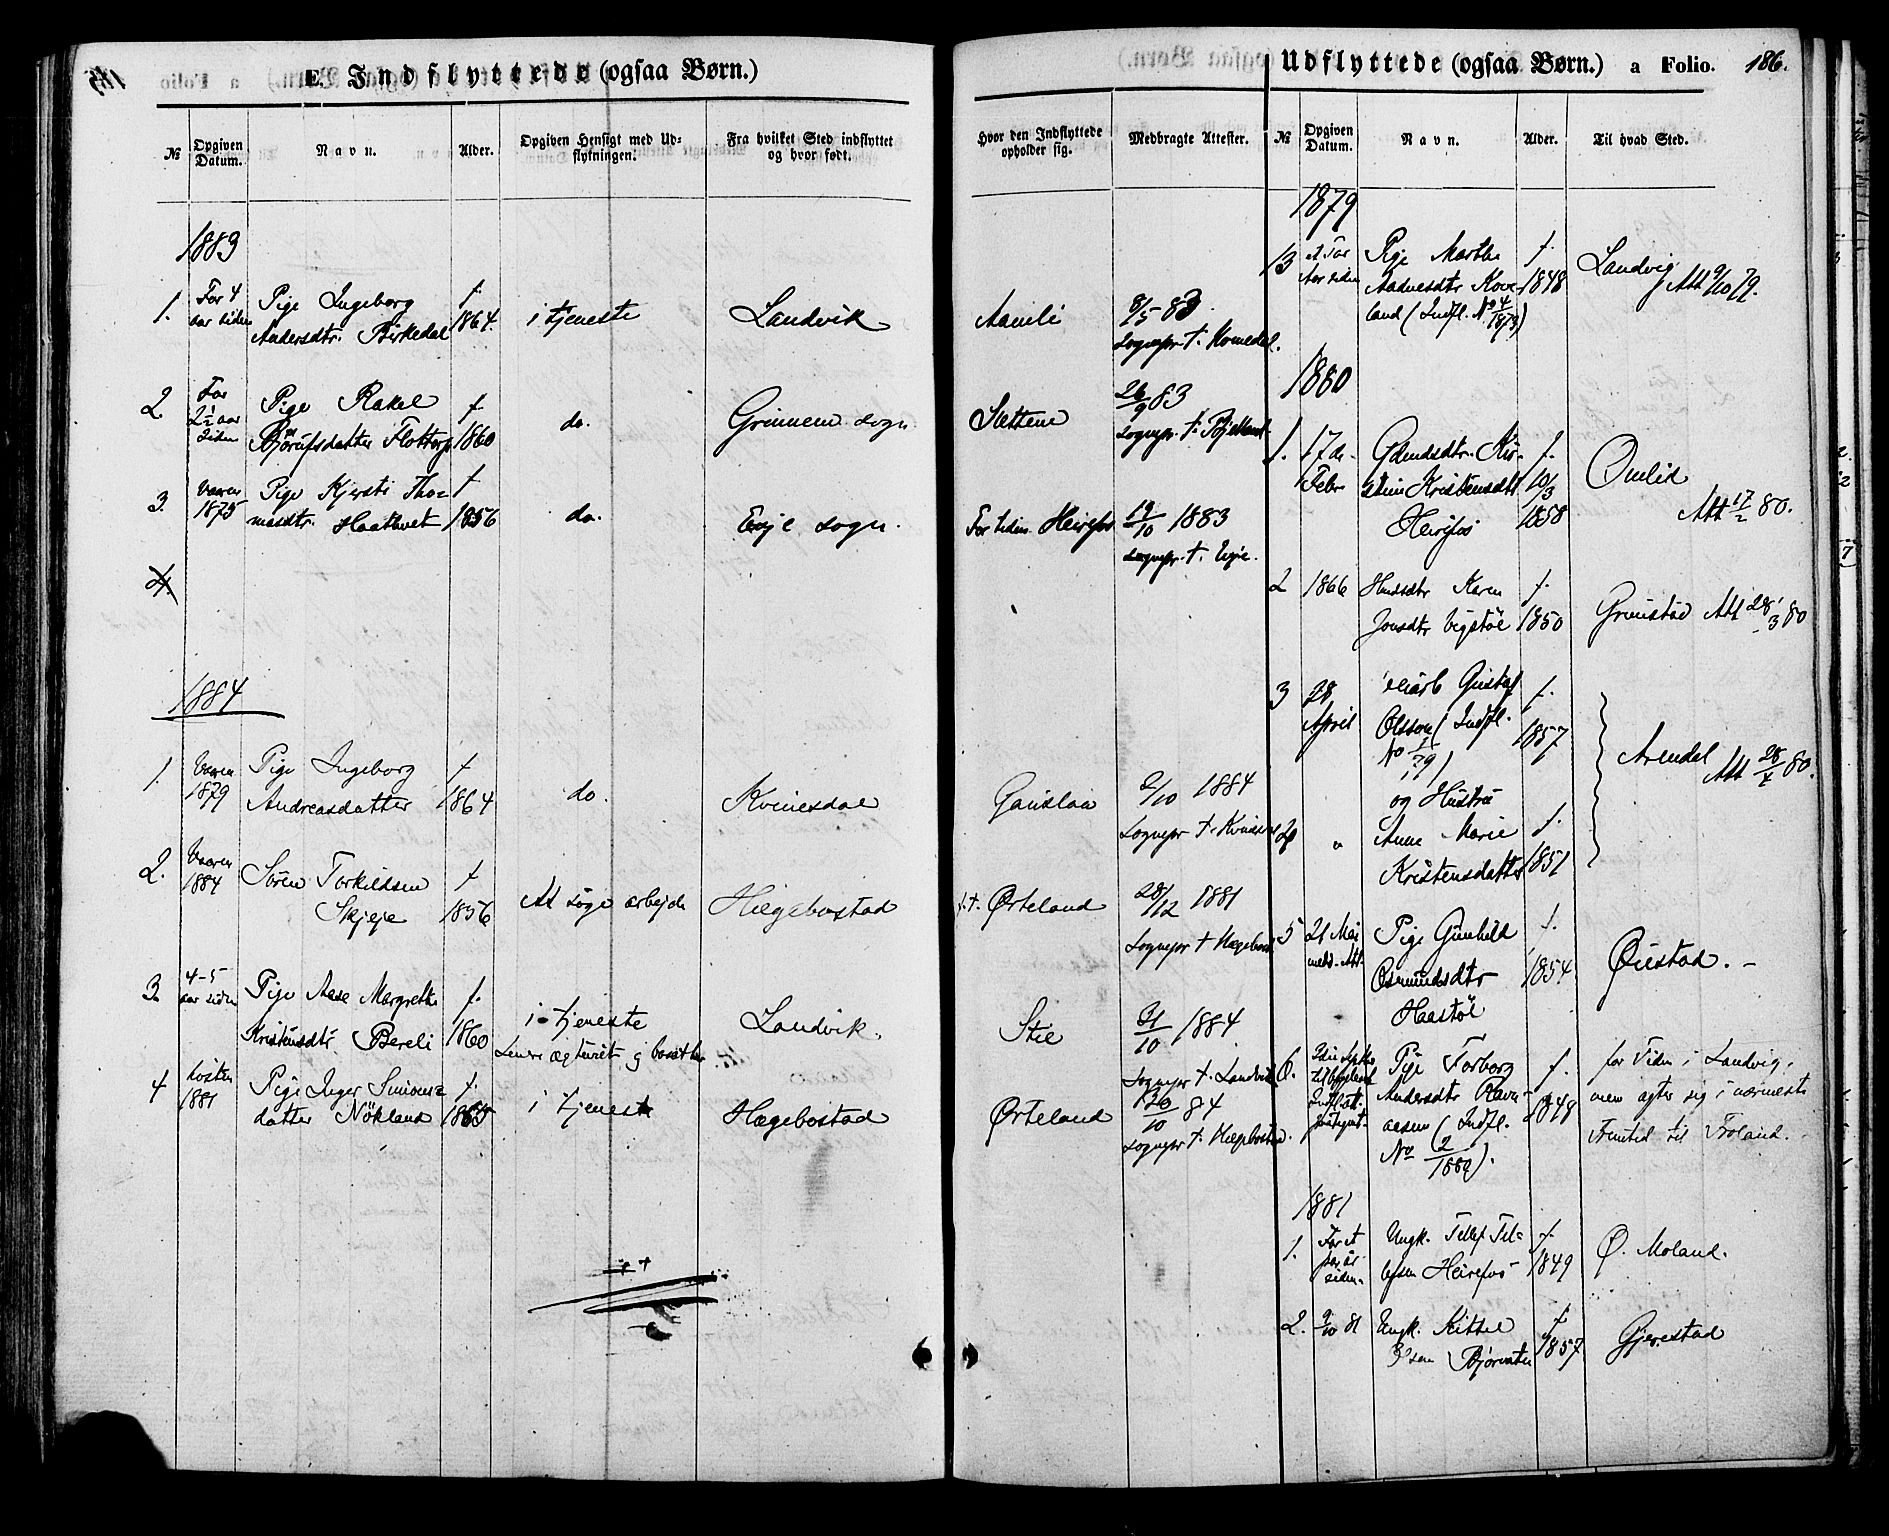 E. Indflyttede (ogsaa Børn.)
№
Opgiven Datum.
Navn.
Alder.
Opgiven Hensigt med Udflytningen.
Fra hvilket Sted indflyttet og hvor født.
1883
1. For 4 aar siden
Pige Ingeborg
Andersdtr. Birkedal
f. 1864.
i tjeneste
Landvik
2. For 2½ aar siden
Pige Rakel
f. 1860
do.
sogn
3. Vaaren 1875
Pige Kjersti Tho-
masdtr. Haathvet
f. 1856
do.
Evje sogn.
4.
1884
1. Vaaren 1879
Pige Ingeborg
Andreasdatter
f. 1864
do.
Kvinesdal
2. Vaaren 1884
Søren Torkildsen
Skjeje
f. 1856
At søge arbejde
Hægebostad
3. 4-5 aar siden
Pige Aase Margrethe
Kristensdtr Bereli
f. 1860
i tjeneste
Landvik.
4 høsten 1881
Pige Inger Simons-
datter Nökland
f. 1865
i tjeneste
Hægebostad
Hvor den Indflyttede opholder sig.
Medbragte Attester.
Aamli
8/5 83
sognepr. t. Homedal.
Sættene
26/9 83
sognepr. t.
For tiden Heirefos
19/10 1883
sognepr. t. Evje.
Gauslaa
2/10 1884
Sognepr t.
f.t. Ørteland
28/12 1881
Sognepr t Hægebost
Stie
31/10 1884
Sognepr t. Landvik
Ørteland
10 84
sognepr t. Hægebostad.
Udflyttede (ogsaa Børn.) a Folio. 186.
№
Opgiven Datum.
Navn.
Alder.
Til hvad Sted.
1879
13 et Par Aar siden
Pige Marthe
Aadnesdtr Kove-
land (Indfl. No 4/1873)
f. 1848
Landvig Att 9/10 79.
1880
1. 17de Febr
Gdmdsdtr. Kir-
stine Kristensdtr
Heirefos
f. 10/3 1858
Omlid
Att 17/2 80.
2 1866
Hmdsdtr Karen
Jonsdtr Vigstøl
f. 1850
Grimstad Att 28/3 80
3 28 April
Gustaf
Olsson (Indfl.
No 1/79)
f. 1857
og Hustru
4 "
Anne Marie
Kristensdatter
f. 1851
Arendal Att 28/4 80.
5 21 Mai meld. Att.
Pige Gunhild
Osmundsdtr
Haastøl
f. 1854
Øiestad. -
6.
Pige Torborg
Andersdtr
(Indfl.
No 2/1880).
f. 1848
for Tiden i Landvig,
men agter sig i nærmeste
Fremtid til Froland.
1881
1. For et par år siden
Ungk. Tellef Tel-
lefsen Heirefos
f. 1849
Ø. Moland.
2. 9/10 81
Ungk. Kittel
f. 1857
Gjerestad